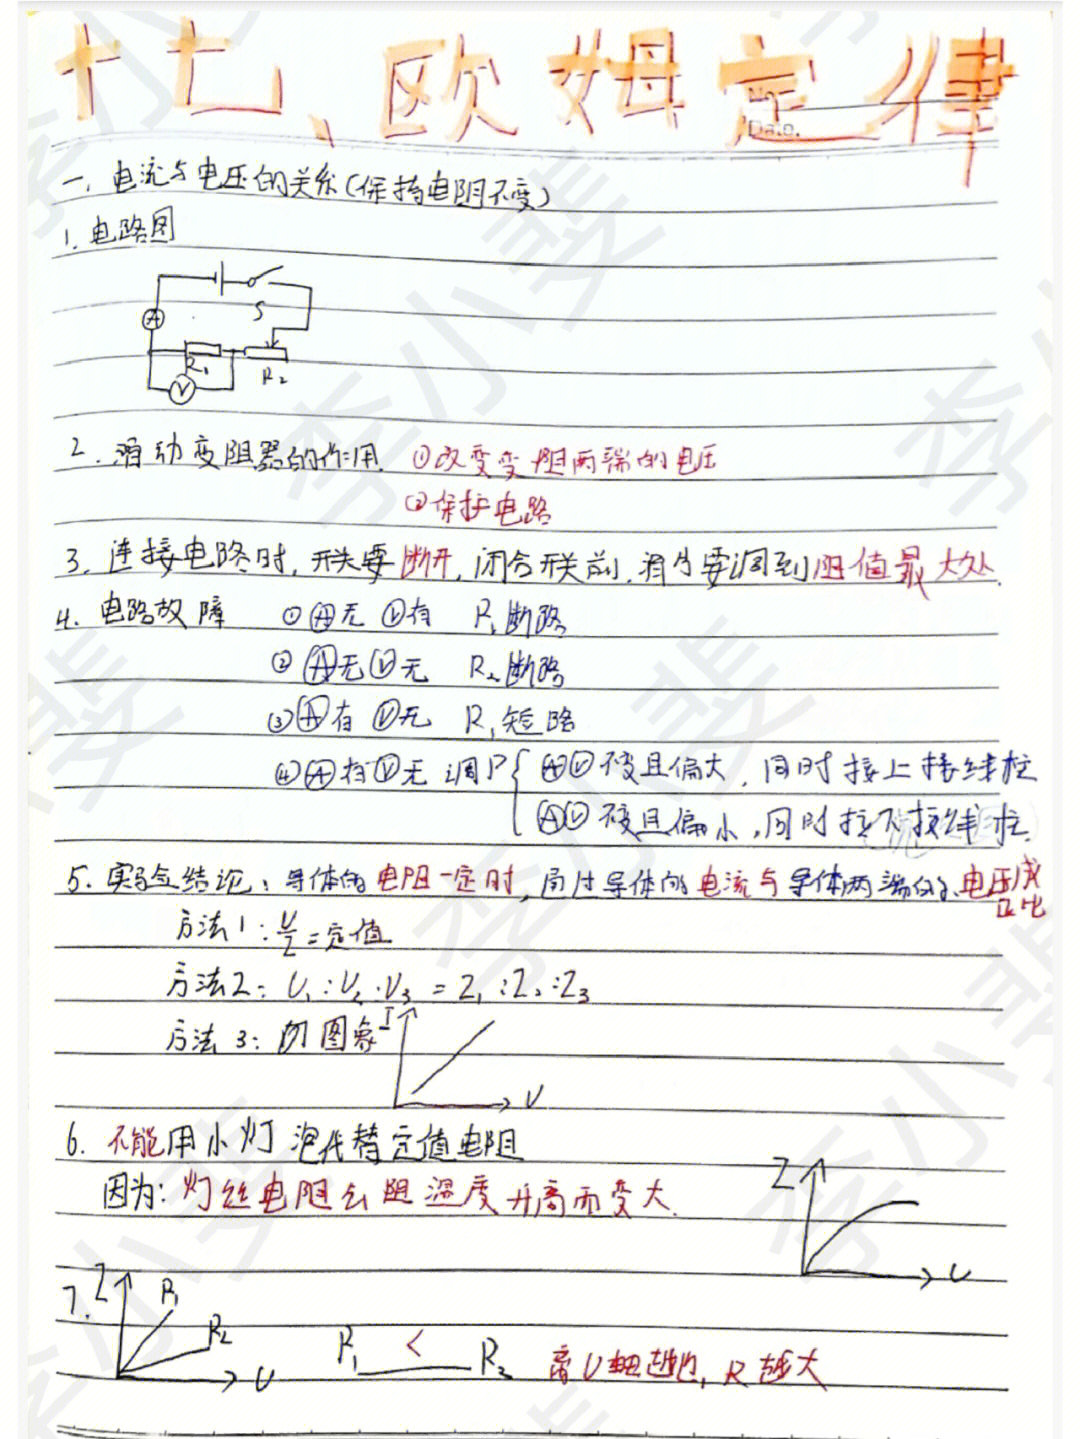 十七、欧姆定律
No.
Date.
一、电流与电压的关系(保持电阻不变)
1.电路图
S
A
R₁
R₂
V
2.滑动变阻器的作用. ①改变变阻两端的电压
②保护电路
3.连接电路时,开关要断开,闭合开关前,滑片要调到阻值最大处.
4.电路故障 ①Ⓐ无 Ⓥ有 R₁断路
②Ⓐ无Ⓥ无 R₂断路
③Ⓐ有 Ⓥ无 R₁短路
④Ⓐ有Ⓥ无 调P{ⒶⓋ不变且偏大,同时接上接线柱
ⒶⓋ不变且偏小,同时接下接线柱.
5.实验结论:导体的电阻一定时,通过导体的电流与导体两端的电压成正比
方法1: U/I=定值
方法2: U₁:U₂:U₃=I₁:I₂:I₃
方法3: 图象
I
U
6.不能用小灯泡代替定值电阻
因为:灯丝电阻会阻温度升高而变大.
I
U
7. I
R₁
R₂
U
R₁ < R₂ 离U轴越近,R越大
李小斐
李小斐
李小斐
李小斐
李小斐